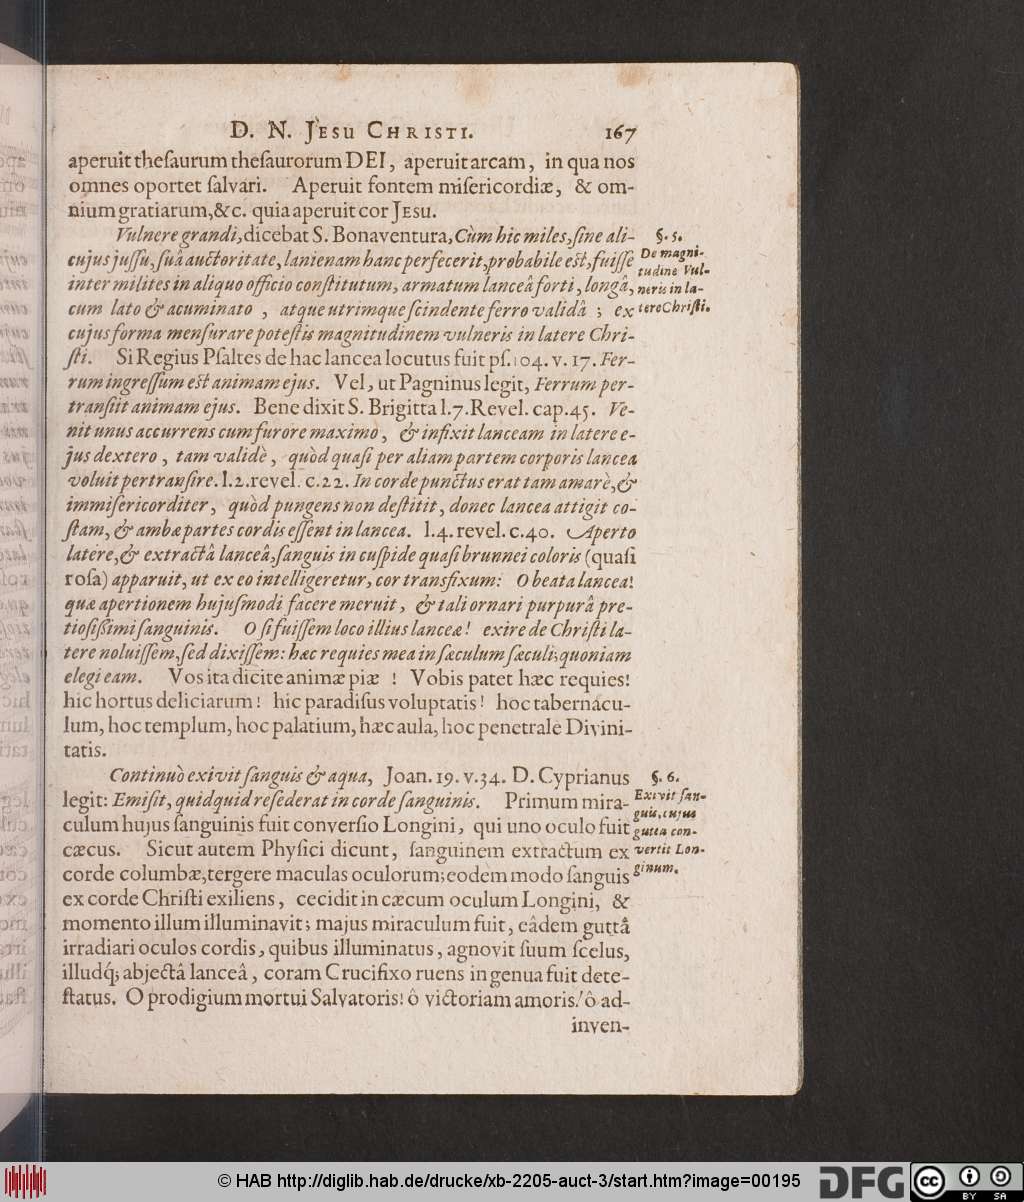 D. N. JESU CHRISTI. 167
aperuit theſaurum theſaurorum DEI, aperuit arcam, in qua nos
omnes oportet ſalvari. Aperuit fontem miſericordiæ, & om-
nium gratiarum, &c. quia aperuit cor JESU.
Vulnere grandi, dicebat S. Bonaventura, Cùm hic miles, ſine ali-
cujus juſſu, ſuâ auctoritate, lanienam hanc perfecerit, probabile eſt, fuiſſe
inter milites in aliquo officio conſtitutum, armatum lanceâ forti, longâ,
cum lato & acuminato, atque utrimque ſcindente ferro validâ; ex
cujus forma menſurare poteſtis magnitudinem vulneris in latere Chri-
ſti. Si Regius Pſaltes de hac lancea locutus fuit pſ. 104. v. 17. Fer-
rum ingreſſum eſt animam ejus. Vel, ut Pagninus legit, Ferrum per-
tranſiit animam ejus. Bene dixit S. Brigitta l. 7. Revel. cap. 45. Ve-
nit unus accurrens cum furore maximo, & infixit lanceam in latere e-
jus dextero, tam validè, quòd quaſi per aliam partem corporis lancea
voluit pertranſire. l. 2. revel. c. 22. In corde punctus erat tam amarè, &
immiſericorditer, quòd pungens non deſtitit, donec lancea attigit co-
ſtam, & ambæ partes cordis eſſent in lancea. l. 4. revel. c. 40. Aperto
latere, & extractâ lanceâ, ſanguis in cuſpide quaſi brunnei coloris (quaſi
roſa) apparuit, ut ex eo intelligeretur, cor transfixum: O beata lancea!
quæ apertionem hujuſmodi facere meruit, & tali ornari purpurâ pre-
tioſiſſimi ſanguinis. O ſi fuiſſem loco illius lanceæ! exire de Chriſti la-
tere noluiſſem, ſed dixiſſem: hæc requies mea in ſæculum ſæculi; quoniam
elegi eam. Vos ita dicite animæ piæ ! Vobis patet hæc requies!
hic hortus deliciarum! hic paradiſus voluptatis! hoc tabernácu-
lum, hoc templum, hoc palatium, hæc aula, hoc penetrale Divini-
tatis.
Continuò exivit ſanguis & aqua, Joan. 19. v. 34. D. Cyprianus
legit: Emiſit, quidquid reſederat in corde ſanguinis. Primum mira-
culum hujus ſanguinis fuit converſio Longini, qui uno oculo fuit
cæcus. Sicut autem Phyſici dicunt, ſanguinem extractum ex
corde columbæ, tergere maculas oculorum; eodem modo ſanguis
ex corde Chriſti exiliens, cecidit in cæcum oculum Longini, &
momento illum illuminavit; majus miraculum fuit, eâdem guttâ
irradiari oculos cordis, quibus illuminatus, agnovit ſuum ſcelus,
illudq́; abjectâ lanceâ, coram Crucifixo ruens in genua fuit dete-
ſtatus. O prodigium mortui Salvatoris! ô victoriam amoris! ô ad-
inven-
§. 5.
De magni-
tudine Vul-
neris in la-
tere Chriſti.
§. 6.
Exivit ſan-
guis, cujus
gutta con-
vertit Lon-
ginum.
© HAB http://diglib.hab.de/drucke/xb-2205-auct-3/start.htm?image=00195
DFG
cc
BY SA